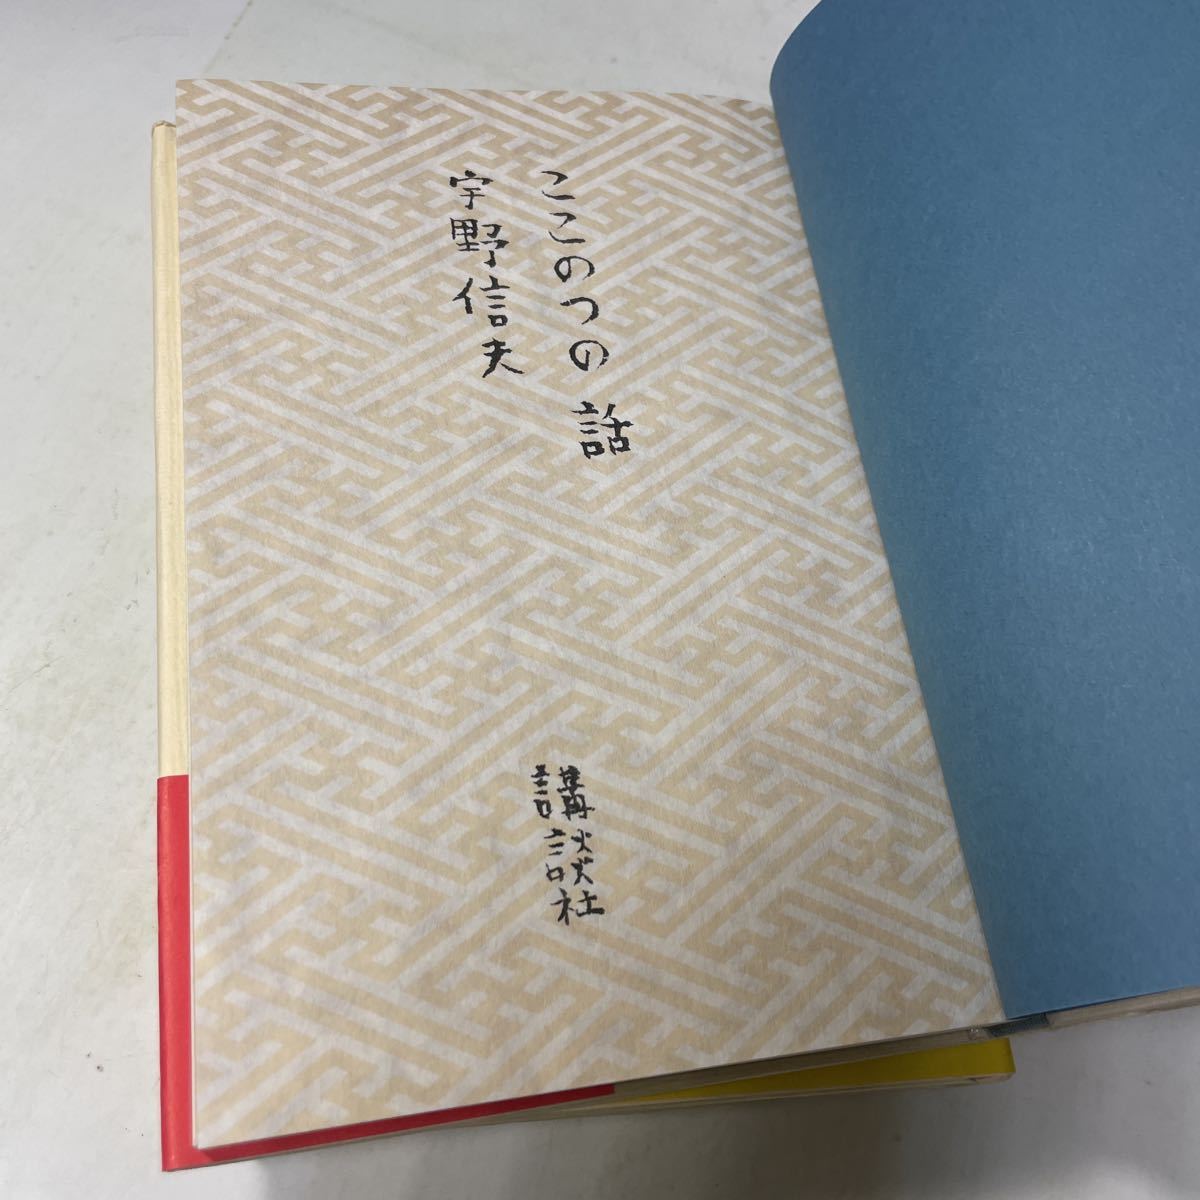 ここのつの話
宇野信夫
講談社